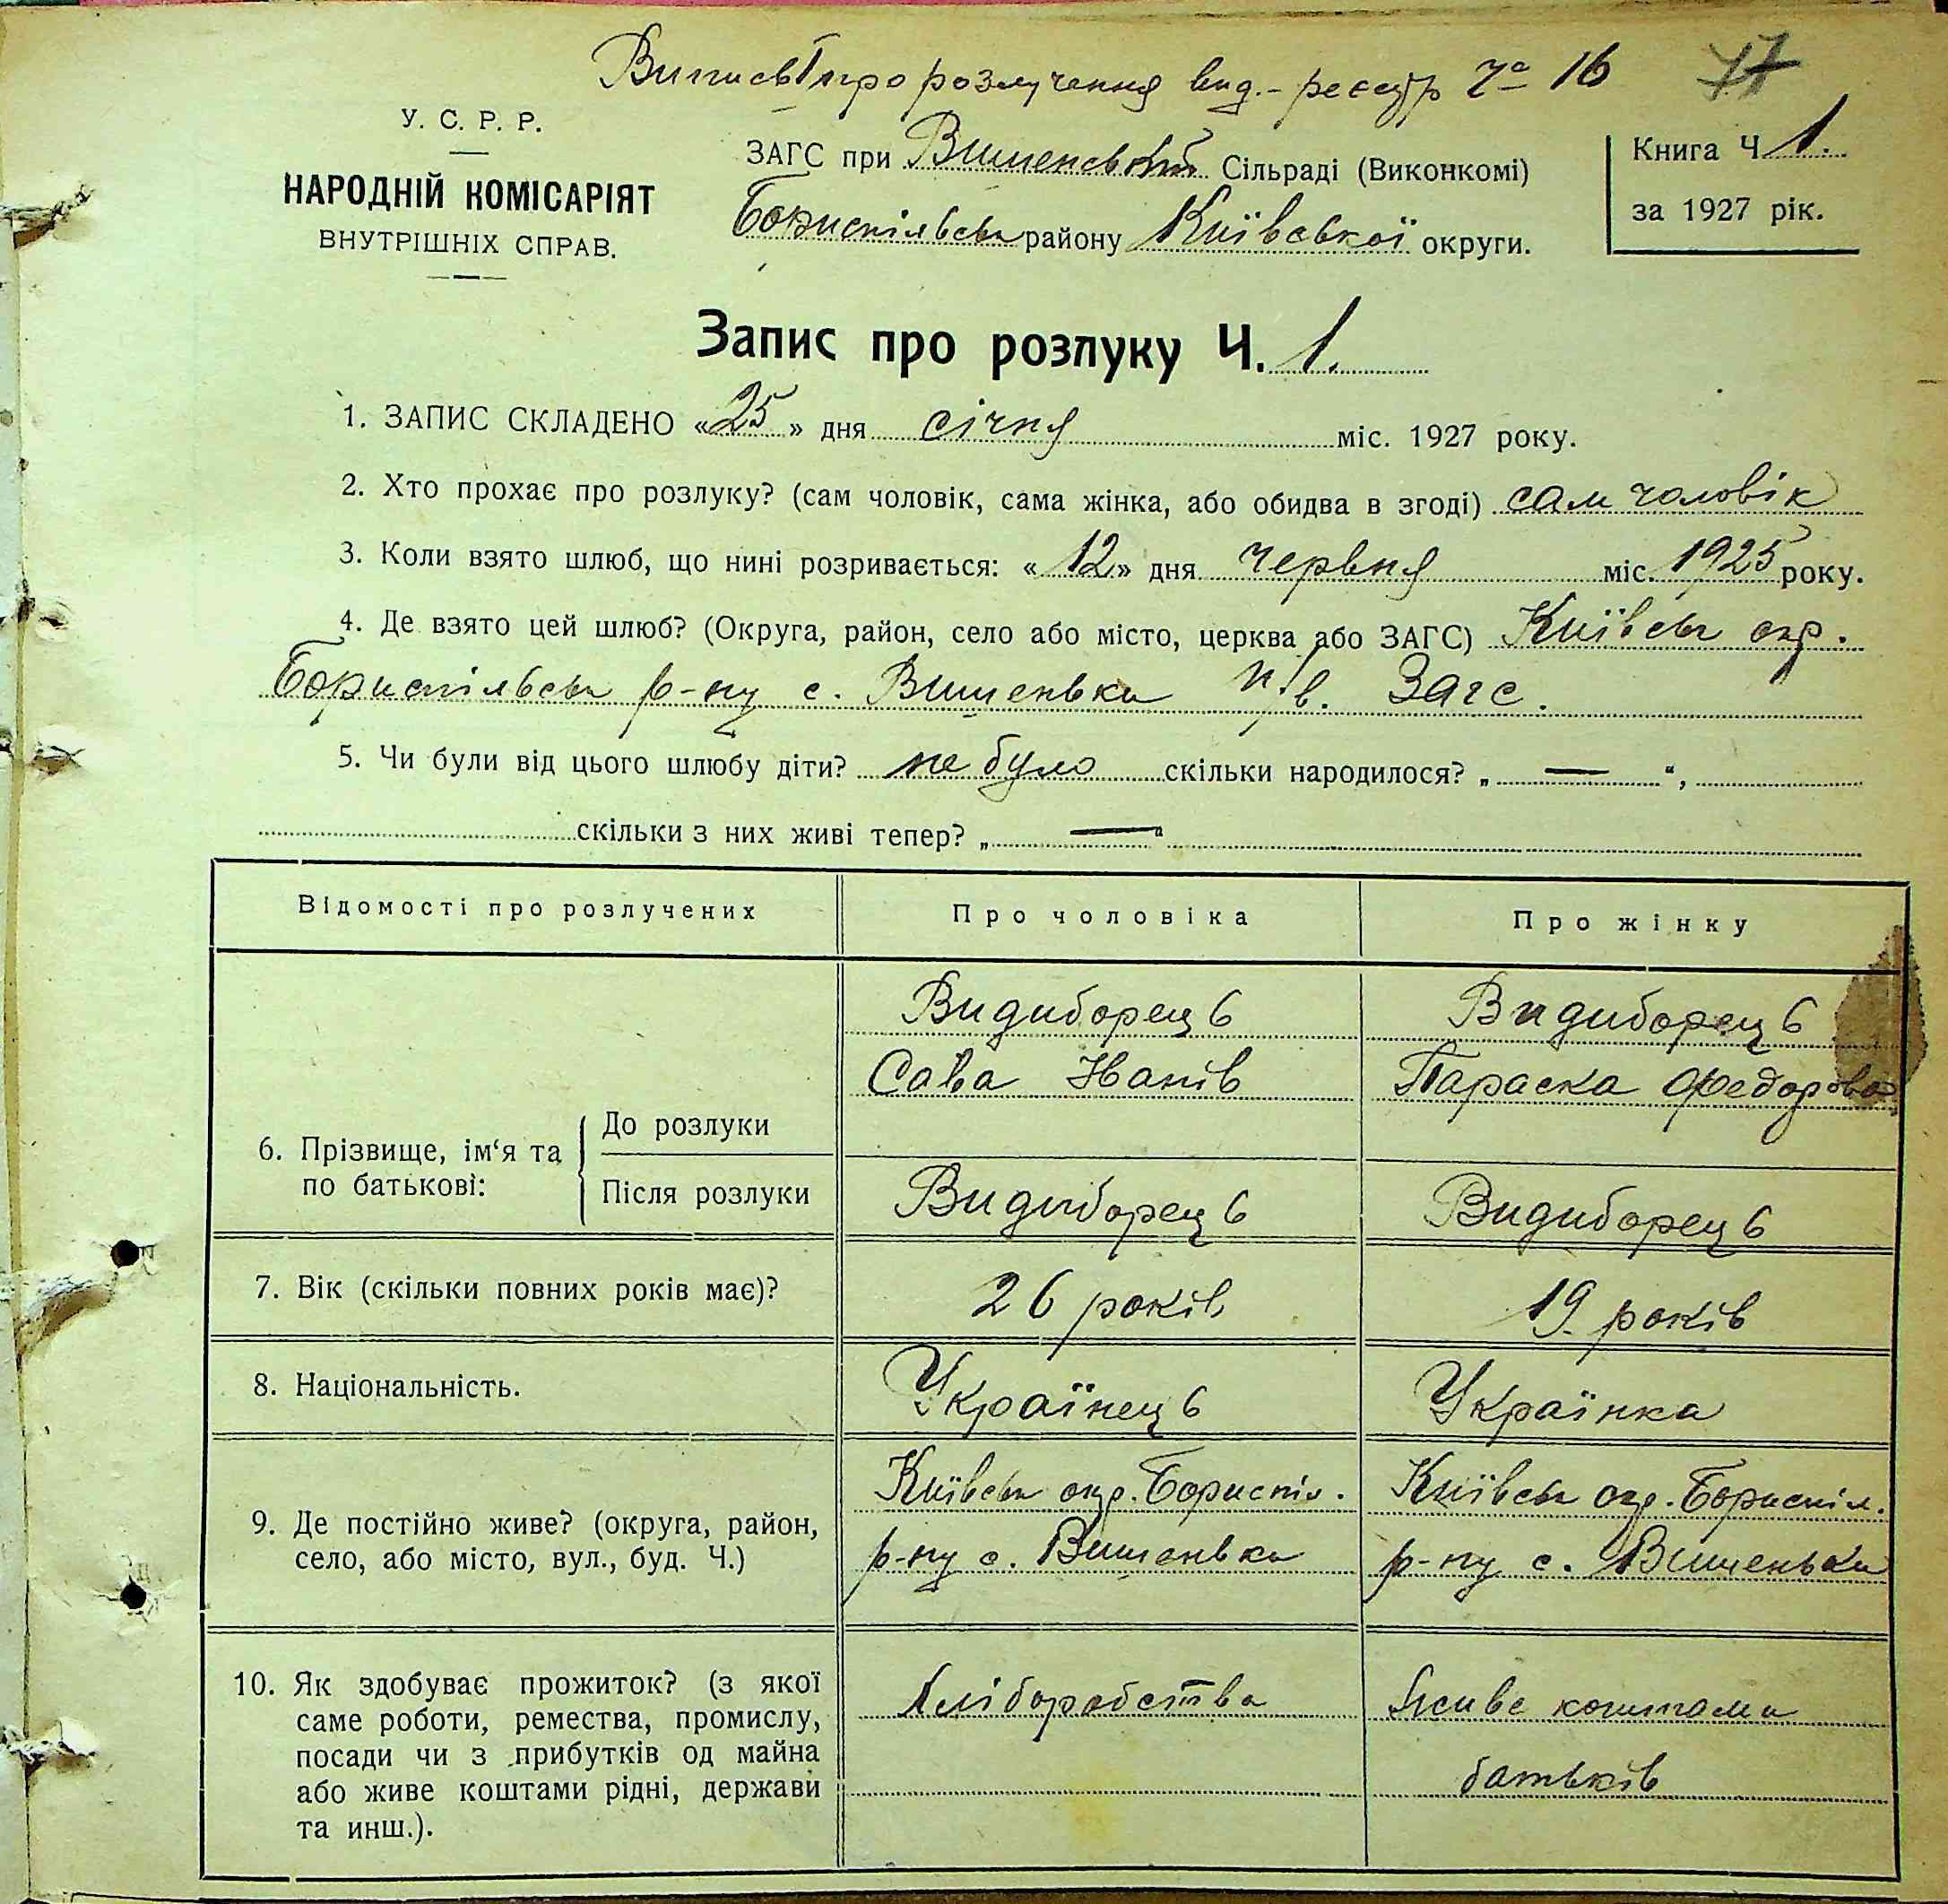 Випись про розлучення вид. - реєстр Ч 16 77
У. С. Р. Р.
НАРОДНІЙ КОМІСАРІЯТ
ВНУТРІШНІХ СПРАВ.
ЗАГС при Вишенській Сільраді (Виконкомі)
Бориспільськ району Київської округи.
Книга Ч 1.
за 1927 рік.
Запис про розлуку Ч. 1.
1. ЗАПИС СКЛАДЕНО «25» дня січня міс. 1927 року.
2. Хто прохає про розлуку? (сам чоловік, сама жінка, або обидва в згоді) сам чоловік
3. Коли взято шлюб, що нині розривається: «12» дня червня міс. 1925 року.
4. Де взято цей шлюб? (Округа, район, село або місто, церква або ЗАГС) Київськ окр.
Бориспільськ р-ну с. Вишеньки в. Загс.
5. Чи були від цього шлюбу діти? не було скільки народилося? „ — “,
скільки з них живі тепер? „ — “
Відомості про розлучених Про чоловіка Про жінку
6. Прізвище, ім‘я та по батькові:
До розлуки
Видиборець
Сава Іванів
Видиборець
Параска Федорова
Після розлуки
Видиборець
Видиборець
7. Вік (скільки повних років має)? 26 років 19 років
8. Національність. Українець Українка
9. Де постійно живе? (округа, район,
село, або місто, вул., буд. Ч.)
Київськ окр. Бориспіл.
р-ну с. Вишеньки
Київськ окр. Бориспіл.
р-ну с. Вишеньки
10. Як здобуває прожиток? (з якої
саме роботи, ремества, промислу,
посади чи з прибутків од майна
або живе коштами рідні, держави
та инш.).
Хліборобства
Живе коштами
батьків